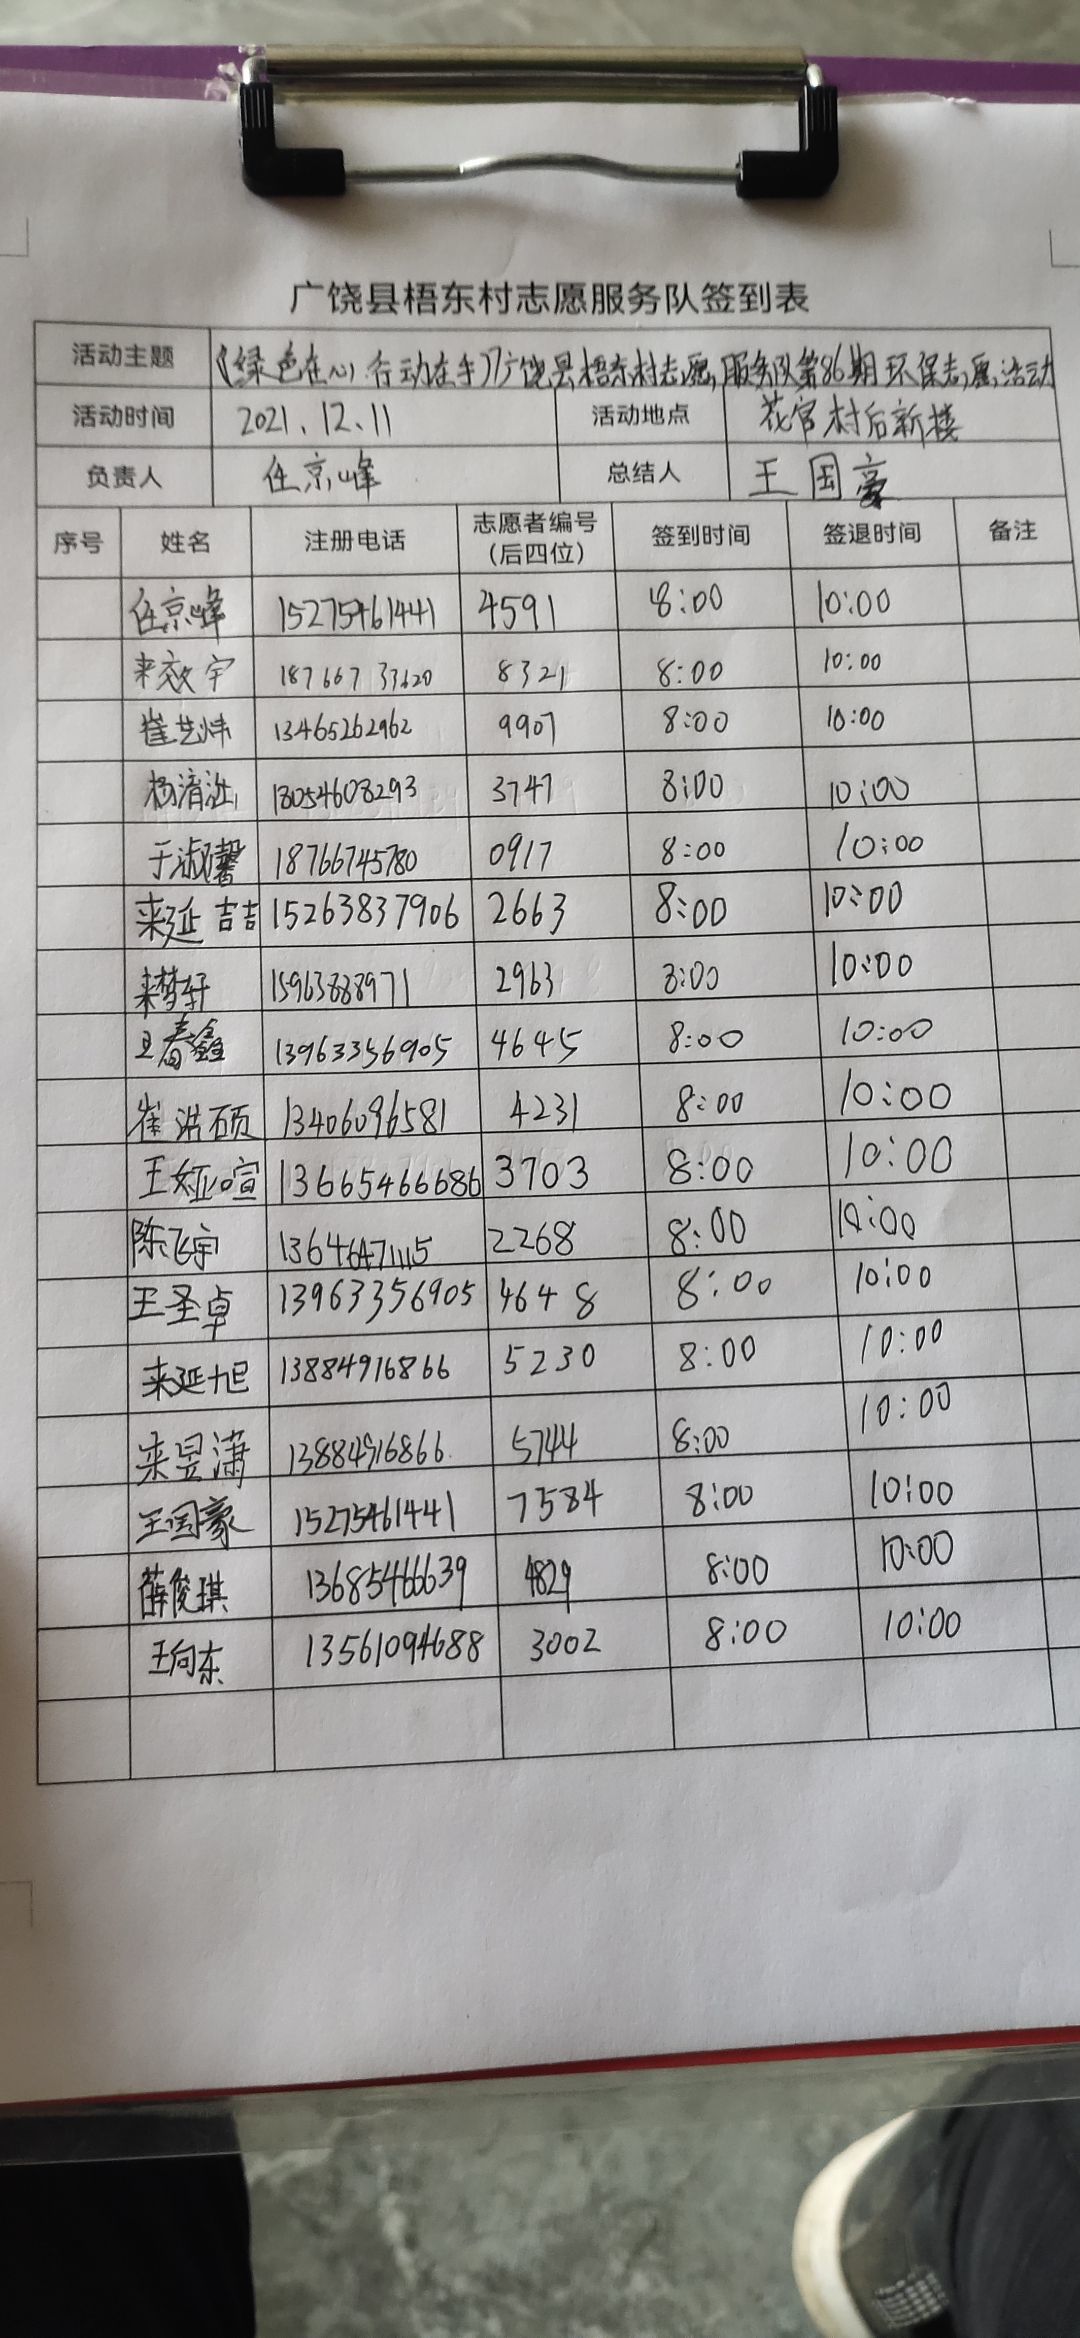 广饶县梧东村志愿服务队签到表
活动主题 《绿色在心 行动在手》广饶县梧东村志愿服务队第86期环保志愿活动
活动时间 2021.12.11 活动地点 花官村后新楼
负责人 任京峰 总结人 王国豪
序号 姓名 注册电话 志愿者编号(后四位) 签到时间 签退时间 备注
任京峰 15275461441 4591 8:00 10:00
来效宇 18766733620 8321 8:00 10:00
崔艺炜 13465262962 9907 8:00 10:00
杨清 18054608293 3747 8:00 10:00
于淑馨 18766745780 0917 8:00 10:00
来延喆 15263837906 2663 8:00 10:00
来梦轩 15963888971 2963 8:00 10:00
王春鑫 13963356905 4645 8:00 10:00
崔浩硕 13406096581 4231 8:00 10:00
王娅喧 13665466686 3703 8:00 10:00
陈飞宇 13646471115 2268 8:00 10:00
王圣卓 13963356905 4648 8:00 10:00
来延旭 13884916866 5230 8:00 10:00
来昱潇 13884916866 5744 8:00 10:00
王国豪 15275461441 7584 8:00 10:00
薛俊琪 13685466639 4829 8:00 10:00
王向东 13561094688 3002 8:00 10:00